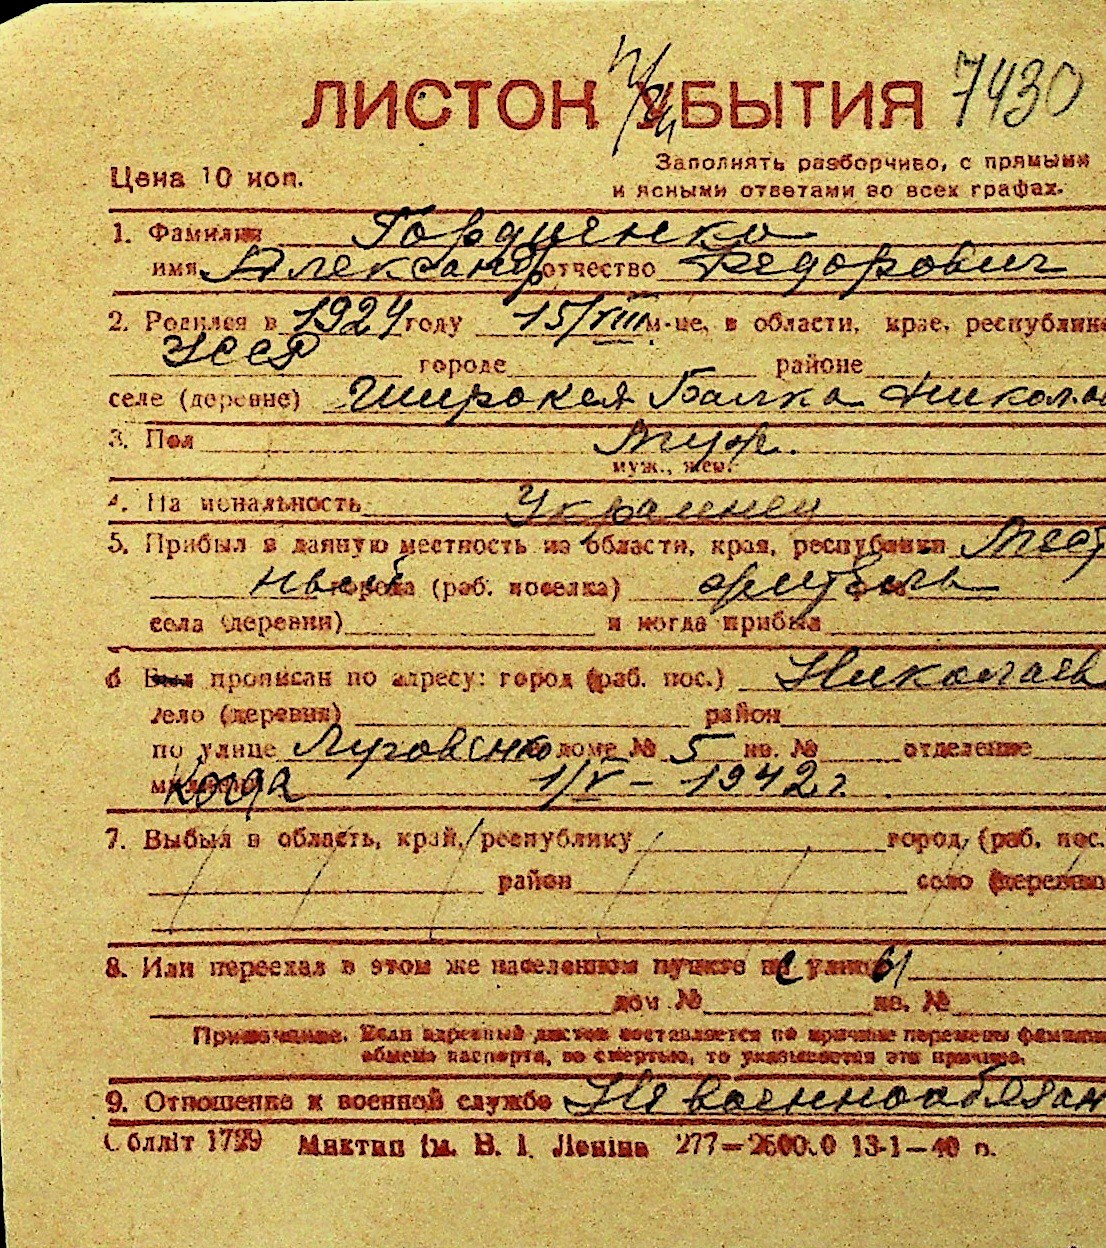 7430
ЛИСТОК УБЫТИЯ
Цена 10 коп.
Заполнять разборчиво, с прямыми
и ясными ответами во всех графах.
1. Фамилия Гордиенко
имя Александр отчество Федорович
2. Родился в 1924 году 15/VIII м-це, в области, крае, республике
УССР городе районе
селе (деревне) Широкая Балка Никола
3. Пол муж.
муж., жен.
4. Национальность Украинец
5. Прибыл в данную местность из области, края, республики Мест
ный города (раб. поселка) житель
села (деревни) и когда прибыл
6 Был прописан по адресу: город (раб. пос.) Николаев
село (деревня) район
по улице доме № 5 кв. № отделение
милиции Когда 1/V – 1942 г.
7. Выбыл в область, край, республику город, (раб. пос.
район село (деревню
8. Или переехал в этом же населенном пункте с улицы
дом № кв. №
Примечание. Если адресный листок составляется по причине перемены фамилии
обмена паспорта, со смертью, то указывается эта причина.
9. Отношение к военной службе Не военнообязан
Облліт 1729 Миктип ім. В. І. Леніна 277—2500.0 13-1—40 р.